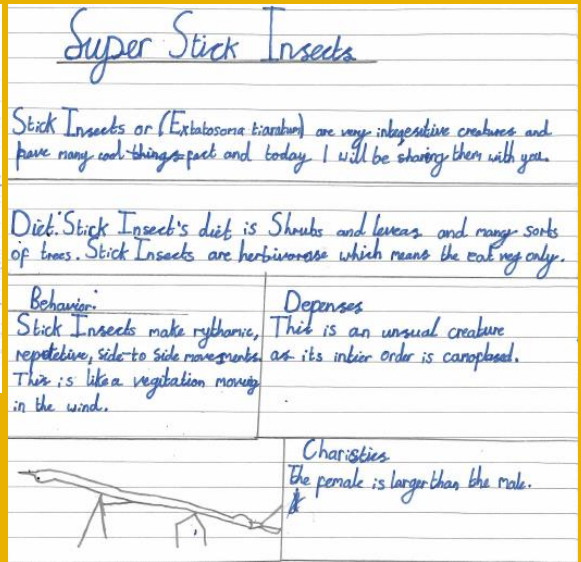 Super Stick Insects
Stick Insects or (Extatosoma tiaratum) are very intregesitive creatures and
have many cool things fact and today I will be sharing them with you.
Diet: Stick Insect's diet is Shrubs and leveas and many sorts
of trees. Stick Insects are herbivorose which means the eat veg only.
Behavior:
Stick Insects make rythamic,
repetetive, side-to side movements
This is like a vegitation moving
in the wind.
Defenses
This is an unsual creature
as its intier order is camoflased.
Charisties
The female is larger than the male.